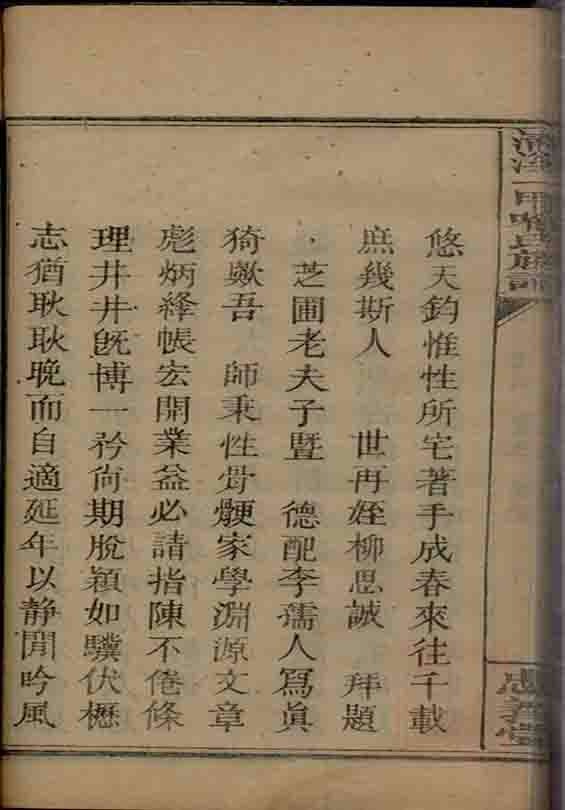 悠天鈞惟性所宅著手成春來往千載
庶幾斯人　世再姪柳思誠　拜題
芝圃老夫子暨　德配李孺人寫眞
猗歟吾　師秉性骨骾家學淵源文章
彪炳絳帳宏開業益必請指陳不倦條
理井井旣博一矜尙期脫穎如驥伏櫪
志猶耿耿晩而自適延年以静閒吟風